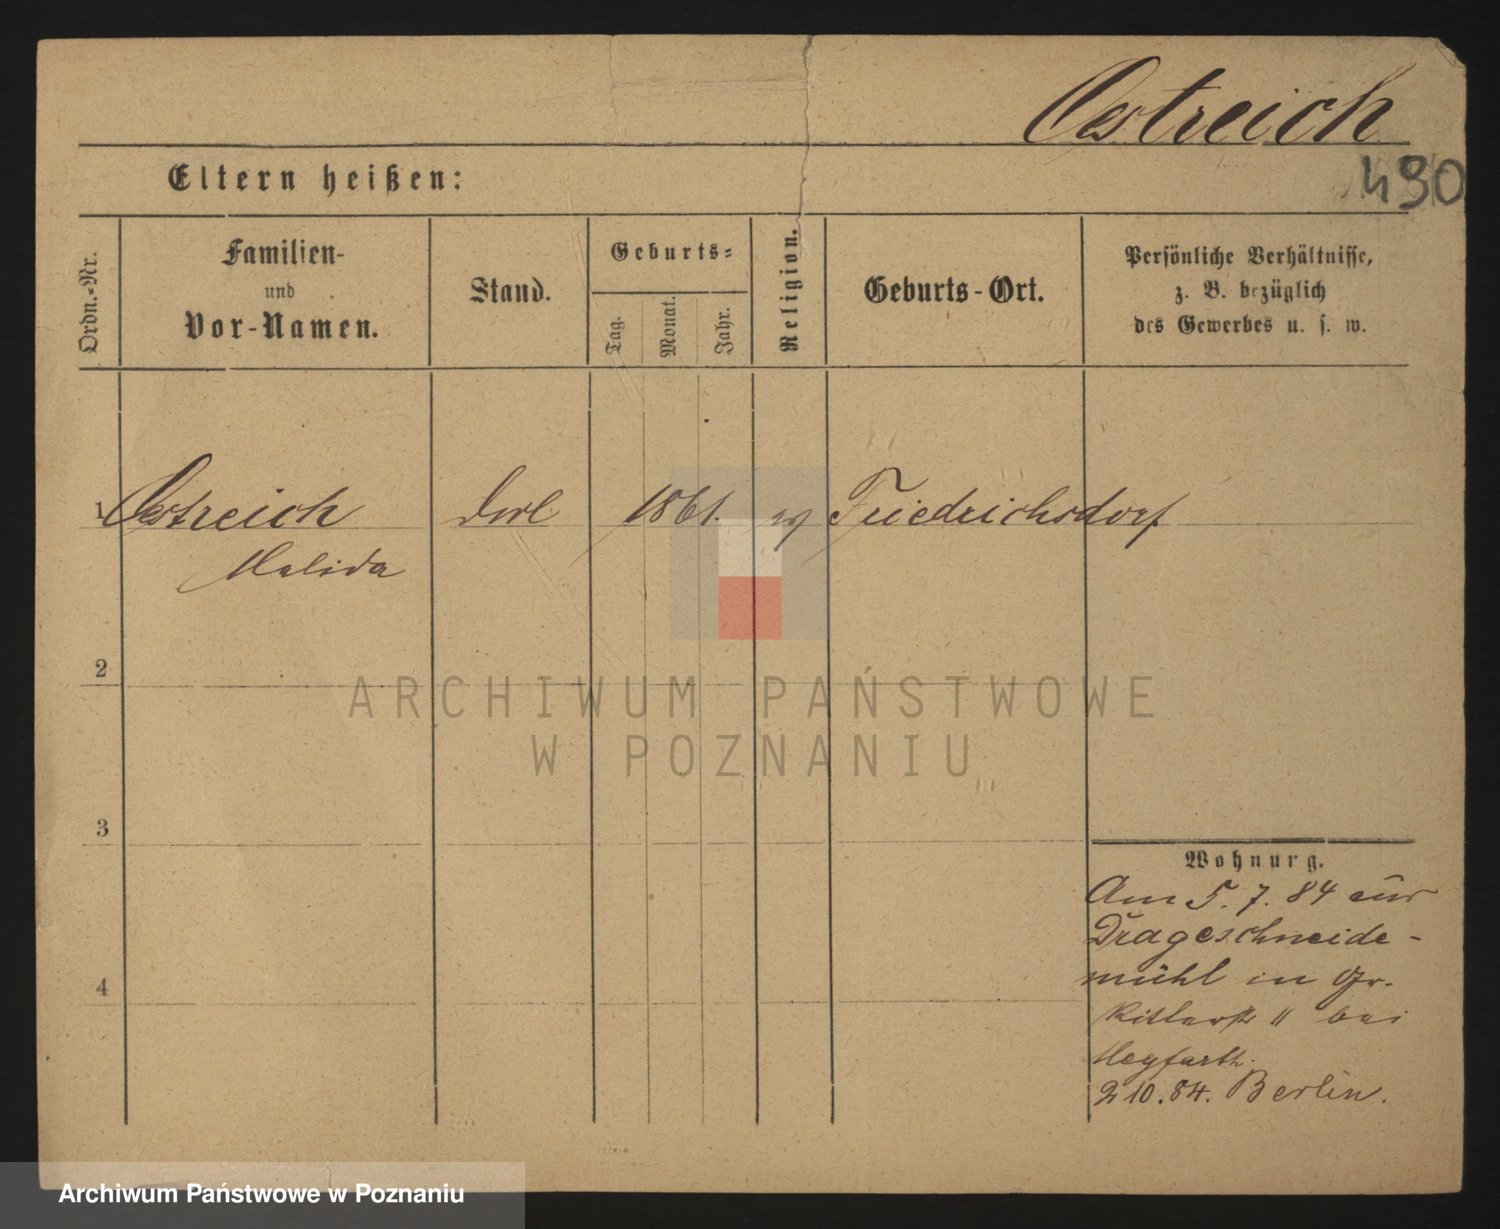 Oestreich
490
Eltern heißen:
Ordn.-Nr.
Familien-
und
Vor-Namen.
Stand.
Geburts-
Tag.
Monat.
Jahr.
Religion.
Geburts-Ort.
Persönliche Verhältnisse,
z. B. bezüglich
des Gewerbes u. s. w.
1 Oestreich 1861. ev Friedrichsdorf
Malida
2
ARCHIWUM PAŃSTWOWE
W POZNANIU
3
4
Wohnung.
Am 5. 7. 84 aus
Drageschneide-
mühl in Gr.
Ritterstr 11 bei
Heyfarth.
2 10. 84. Berlin.
Archiwum Państwowe w Poznaniu